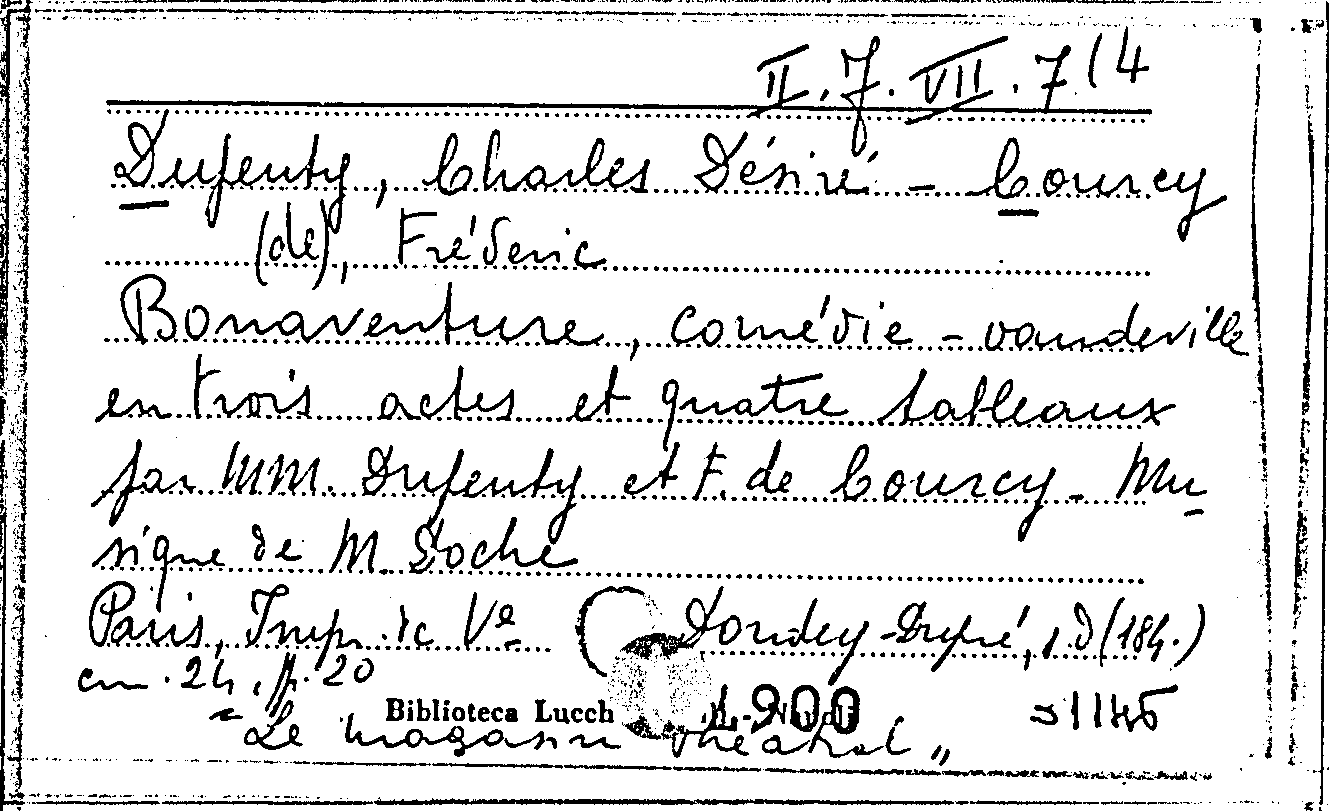 II. J. VII. 7 (4
Dupeuty, Charles Désiré - Courcy
(de), Fréderic
Bonaventure, comédie - vaudeville
en trois actes et quatre tableaux
par MM. Dupeuty et F. de Courcy - Mu
sique de M. Doche
Paris, Imp. de Ve Dondey-Dupré, s.d (184.)
cm. 24. p. 20
Biblioteca Lucch 1900 1146
"Le magasin théatral"